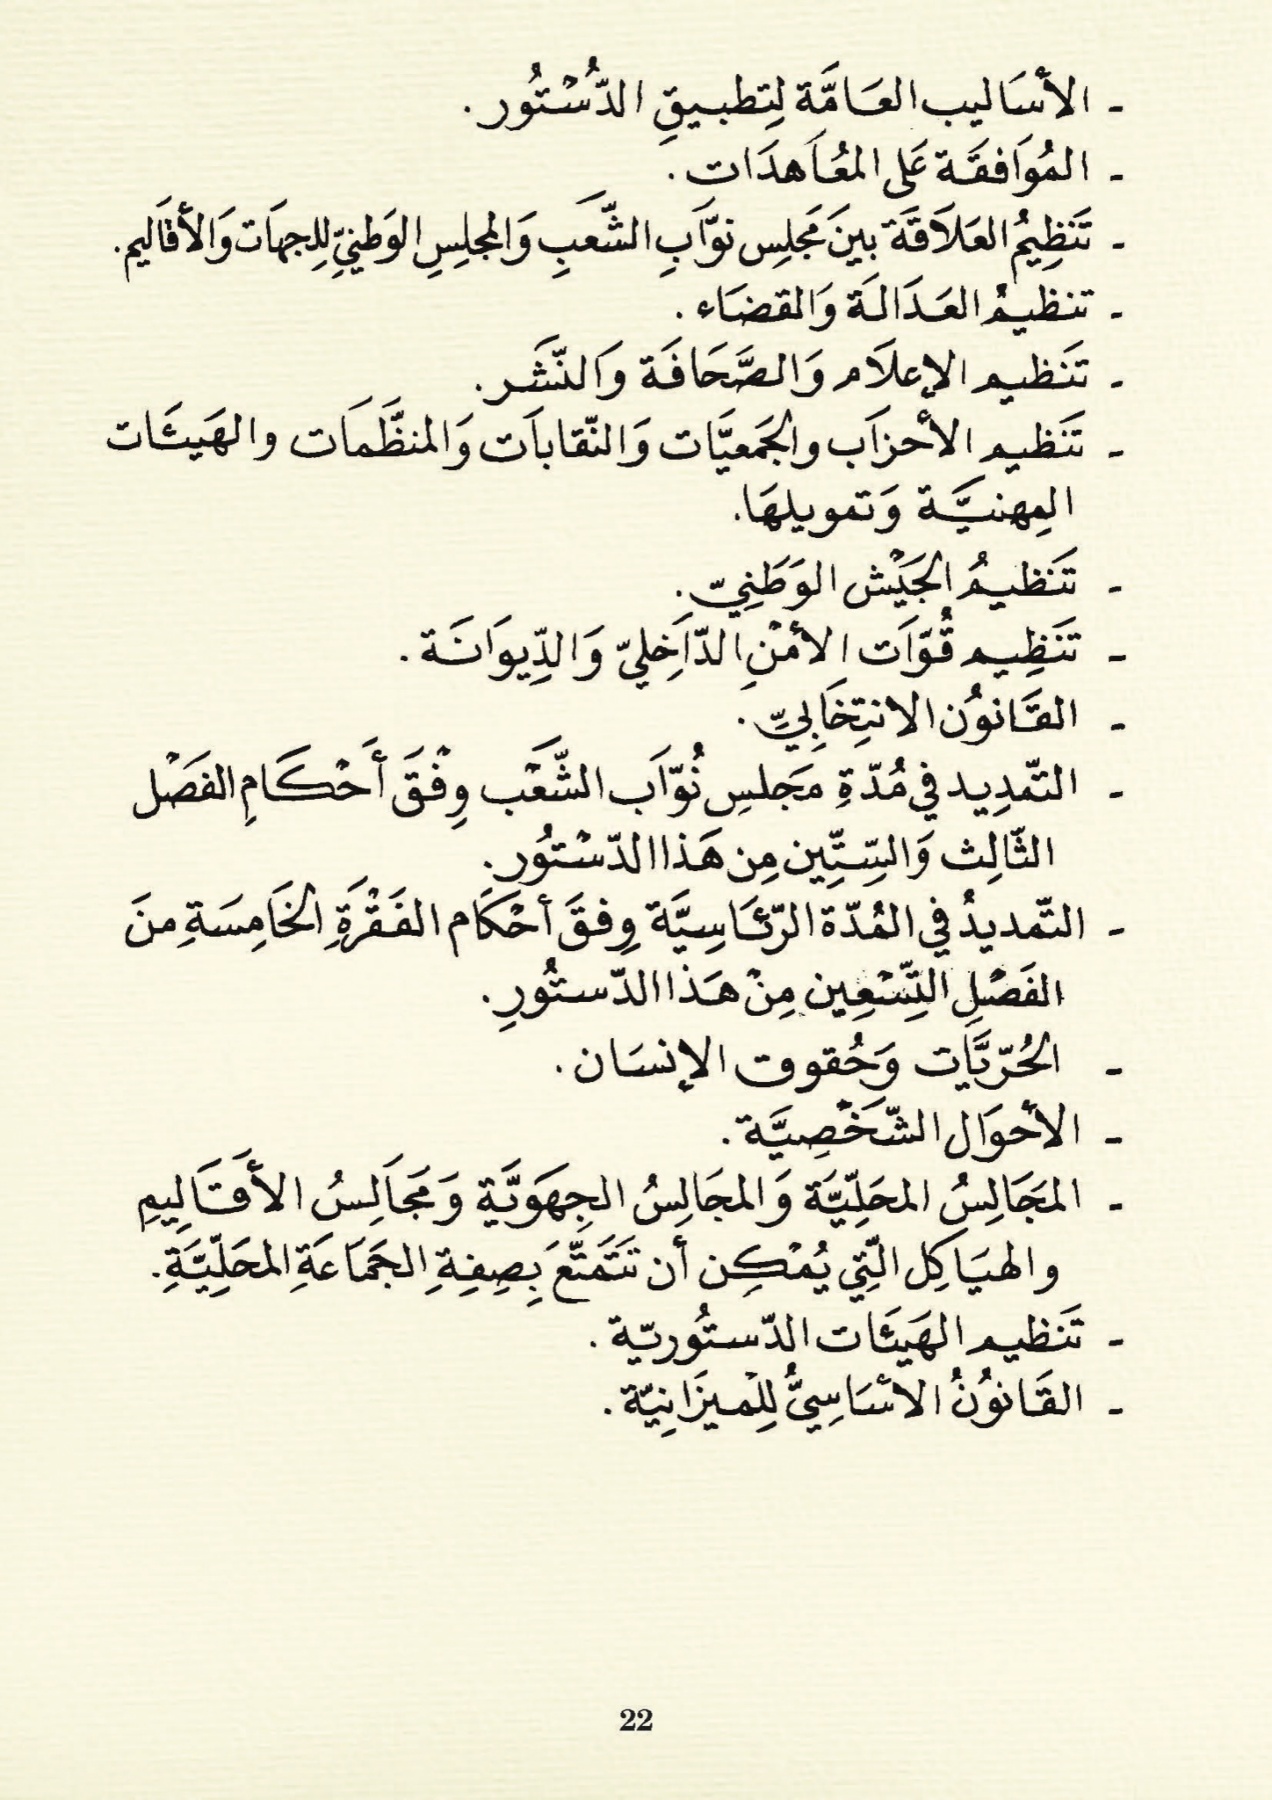 - الأسَاليب العَامَّة لِتطبيقِ الدُّسْتُور.
- المُوَافقَة عَلى المعُاَهدَات.
- تَنَظِيمُ العَلاَقَة بينَ مَجَلِس نوّاَبِ الشَّعَبِ وَالمجلِسِ الوَطنيِّ لِلجِهاَت وَالأقاَليم.
- تنظيمُ العَدَالَة وَالقضَاء.
- تنَظيم الإعلاَم وَالصَّحَافَة وَالنّشَر.
- تَنَظيم الأحزاَب والجَمعيَّات وَالنّقاباَت وَالمنظَّمَات والهَيئَات
المِهنيَّة وَتمويلهَا.
- تَنَظيمُ الجَيْش الوَطَنِيّ.
- تنَظِيم قُوّاَت الأمْنِ الدّاَخِليّ وَالدِّيوَانَة.
- القَانوُن الانتِخَابِيِّ.
- التّمدِيد في مُدّةِ مجَلسِ نُوّاَب الشَّعَب وِفْقَ أَحْكَامِ الفَصْل
الثّالِث وَالسِّتِّين مِن هَذا الدّسْتوُر.
- التّمديدُ في المُدّة الرّئَاسِيَّة وِفقَ أحْكَام الفَقْرَةِ الخَامِسَةِ منَ
الفَصْلِ التِّسْعِين مِنْ هَذا الدّستُورِ.
- الحُرّيَّات وَحُقوق الإنسَان.
- الأحوَال الشّخَصِيَّة.
- المجَالِسُ المحَلِّيَّة وَالمجَالِسُ الجِهَوَيَّة وَمَجَاَلِسُ الأَقَاَلِيمِ
والهيَاكِل الّتِي يُمْكِن أن تتَمَتّعَ بِصِفِةِ الجَمَاعَةِ المحَلِّيَّةِ.
- تَنَظيم الهَيئَات الدّستُوريّة.
- القَانوُنُ الأسَاسِيُّ لِلْميزَانِيّة.
22